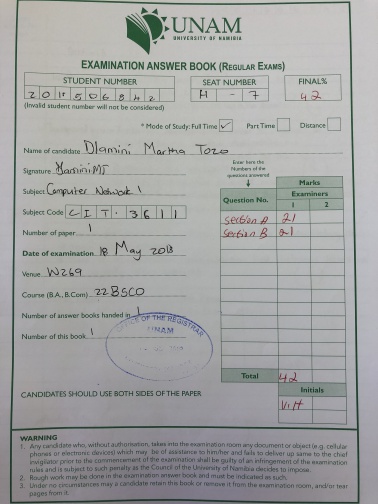 UNAM
UNIVERSITY OF NAMIBIA
EXAMINATION ANSWER BOOK (REGULAR EXAMS)
STUDENT NUMBER SEAT NUMBER FINAL%
201506842 H - 7 42
(Invalid student number will not be considered)
* Mode of Study: Full Time ✓ Part Time Distance
Name of candidate Dlamini Martha Tozo
Signature
Enter here the Numbers of the questions answered:
Subject Computer Network 1
Marks
Question No. Examiners
1 2
Subject Code CIT. 3611
Section A 21
Section B 21
Number of paper 1
Date of examination. 18 May 2018
Venue W269
Course (B.A., B.Com) 22BSCO
Number of answer books handed in 1
Number of this book 1
OFFICE OF THE REGISTRAR
UNAM
Total 42
CANDIDATES SHOULD USE BOTH SIDES OF THE PAPER
Initials
V.H
WARNING
1. Any candidate who, without authorisation, takes into the examination room any document or object (e.g. cellular
phones or electronic devices) which may be of assistance to him/her and fails to deliver up same to the chief
invigilator prior to the commencement of the examination shall be guilty of an infringement of the examination
rules and is subject to such penalty as the Council of the University of Namibia decides to impose.
2. Rough work may be done in the examination answer book and must be indicated as such.
3. Under no circumstances may a candidate retain this book or remove it from the examination room, and/or tear
pages from it.